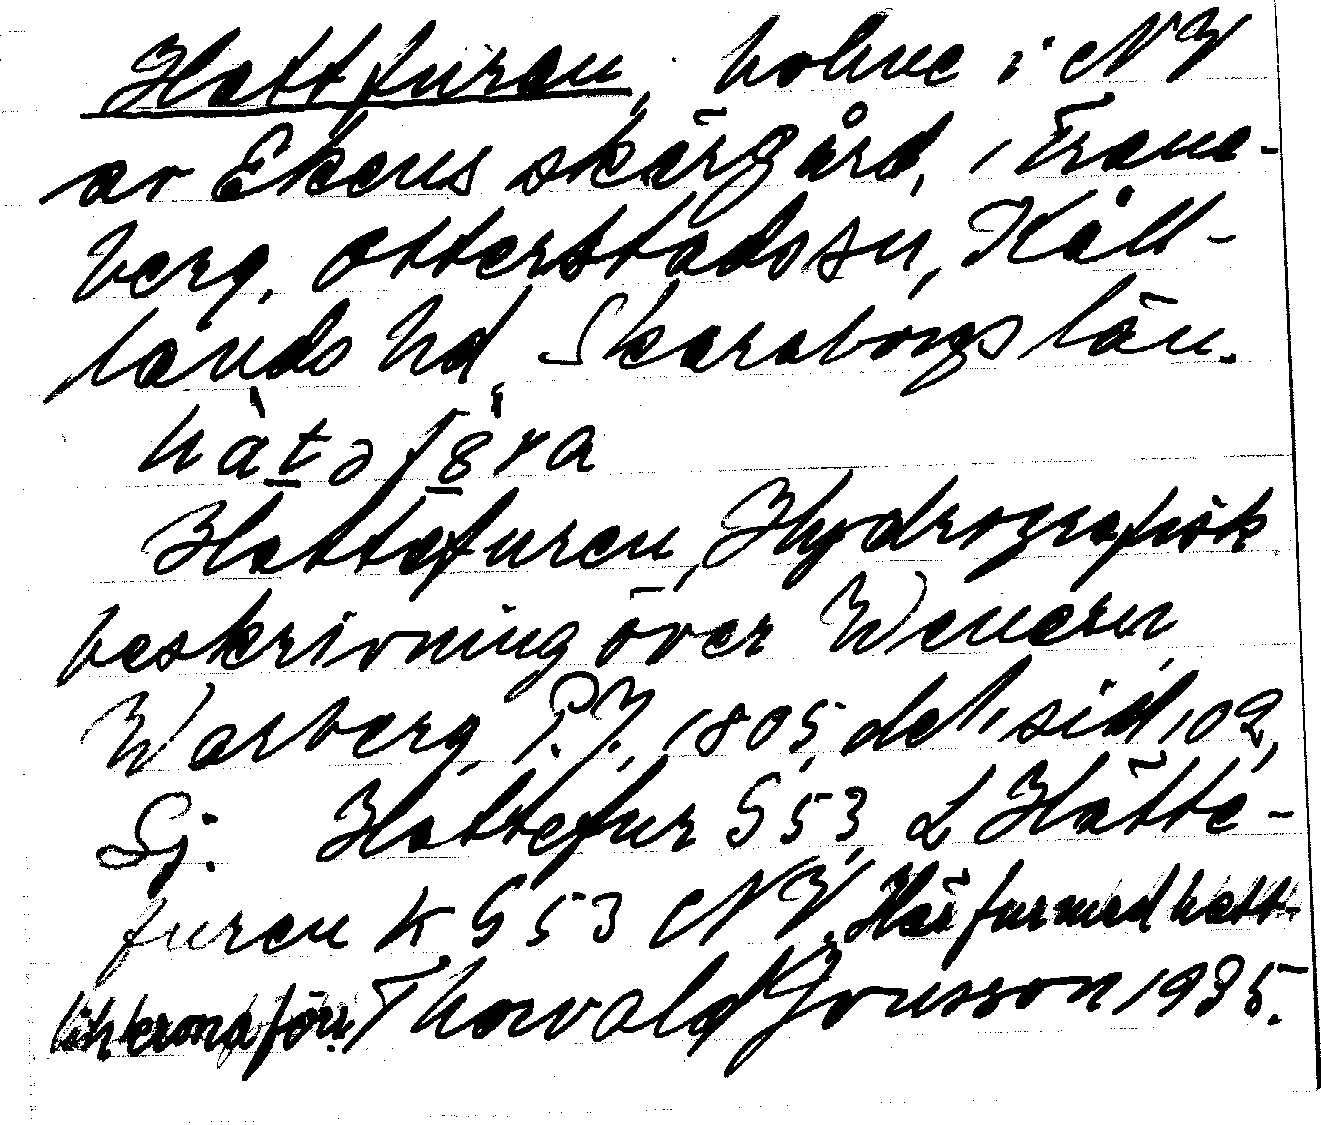 Hattfuren, holme i NV
av Ekens skärgård, i Trane-
berg, Otterstads sn, Kåll-
lands hd, Skaraborgs län.
hàtəfɣ̀ra
Hattefuren, Hydrografisk
beskrivning över Wenern,
Warberg, P.J. 1805, del 1, sid 102,
Sj. Hattefur S 53, L Hatte-
furen k S 53 NV, Här fur med hatt-
lik krona förr. Thorvald Jonsson 1935.